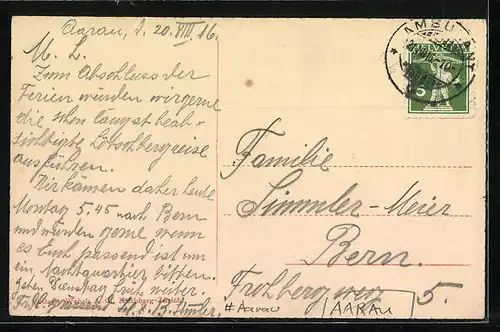 Aarau, d. 20. VIII. 16.
M. L.
Zum Abschluss der
Ferien würden wir gerne
die schon längst beab-
sichtigte Lötschbergreise
ausführen.
Wir kämen daher heute
Montag 5.45 nach Bern
und würden gerne wenn
es Euch passend ist um
ein Nachtquartier bitten.
Gehen Dienstag früh weiter.
AMBULANT
HELVETIA
5
Familie
Simmler-Meier
Bern.
Frohbergweg 5.
#Aarau
AARAU